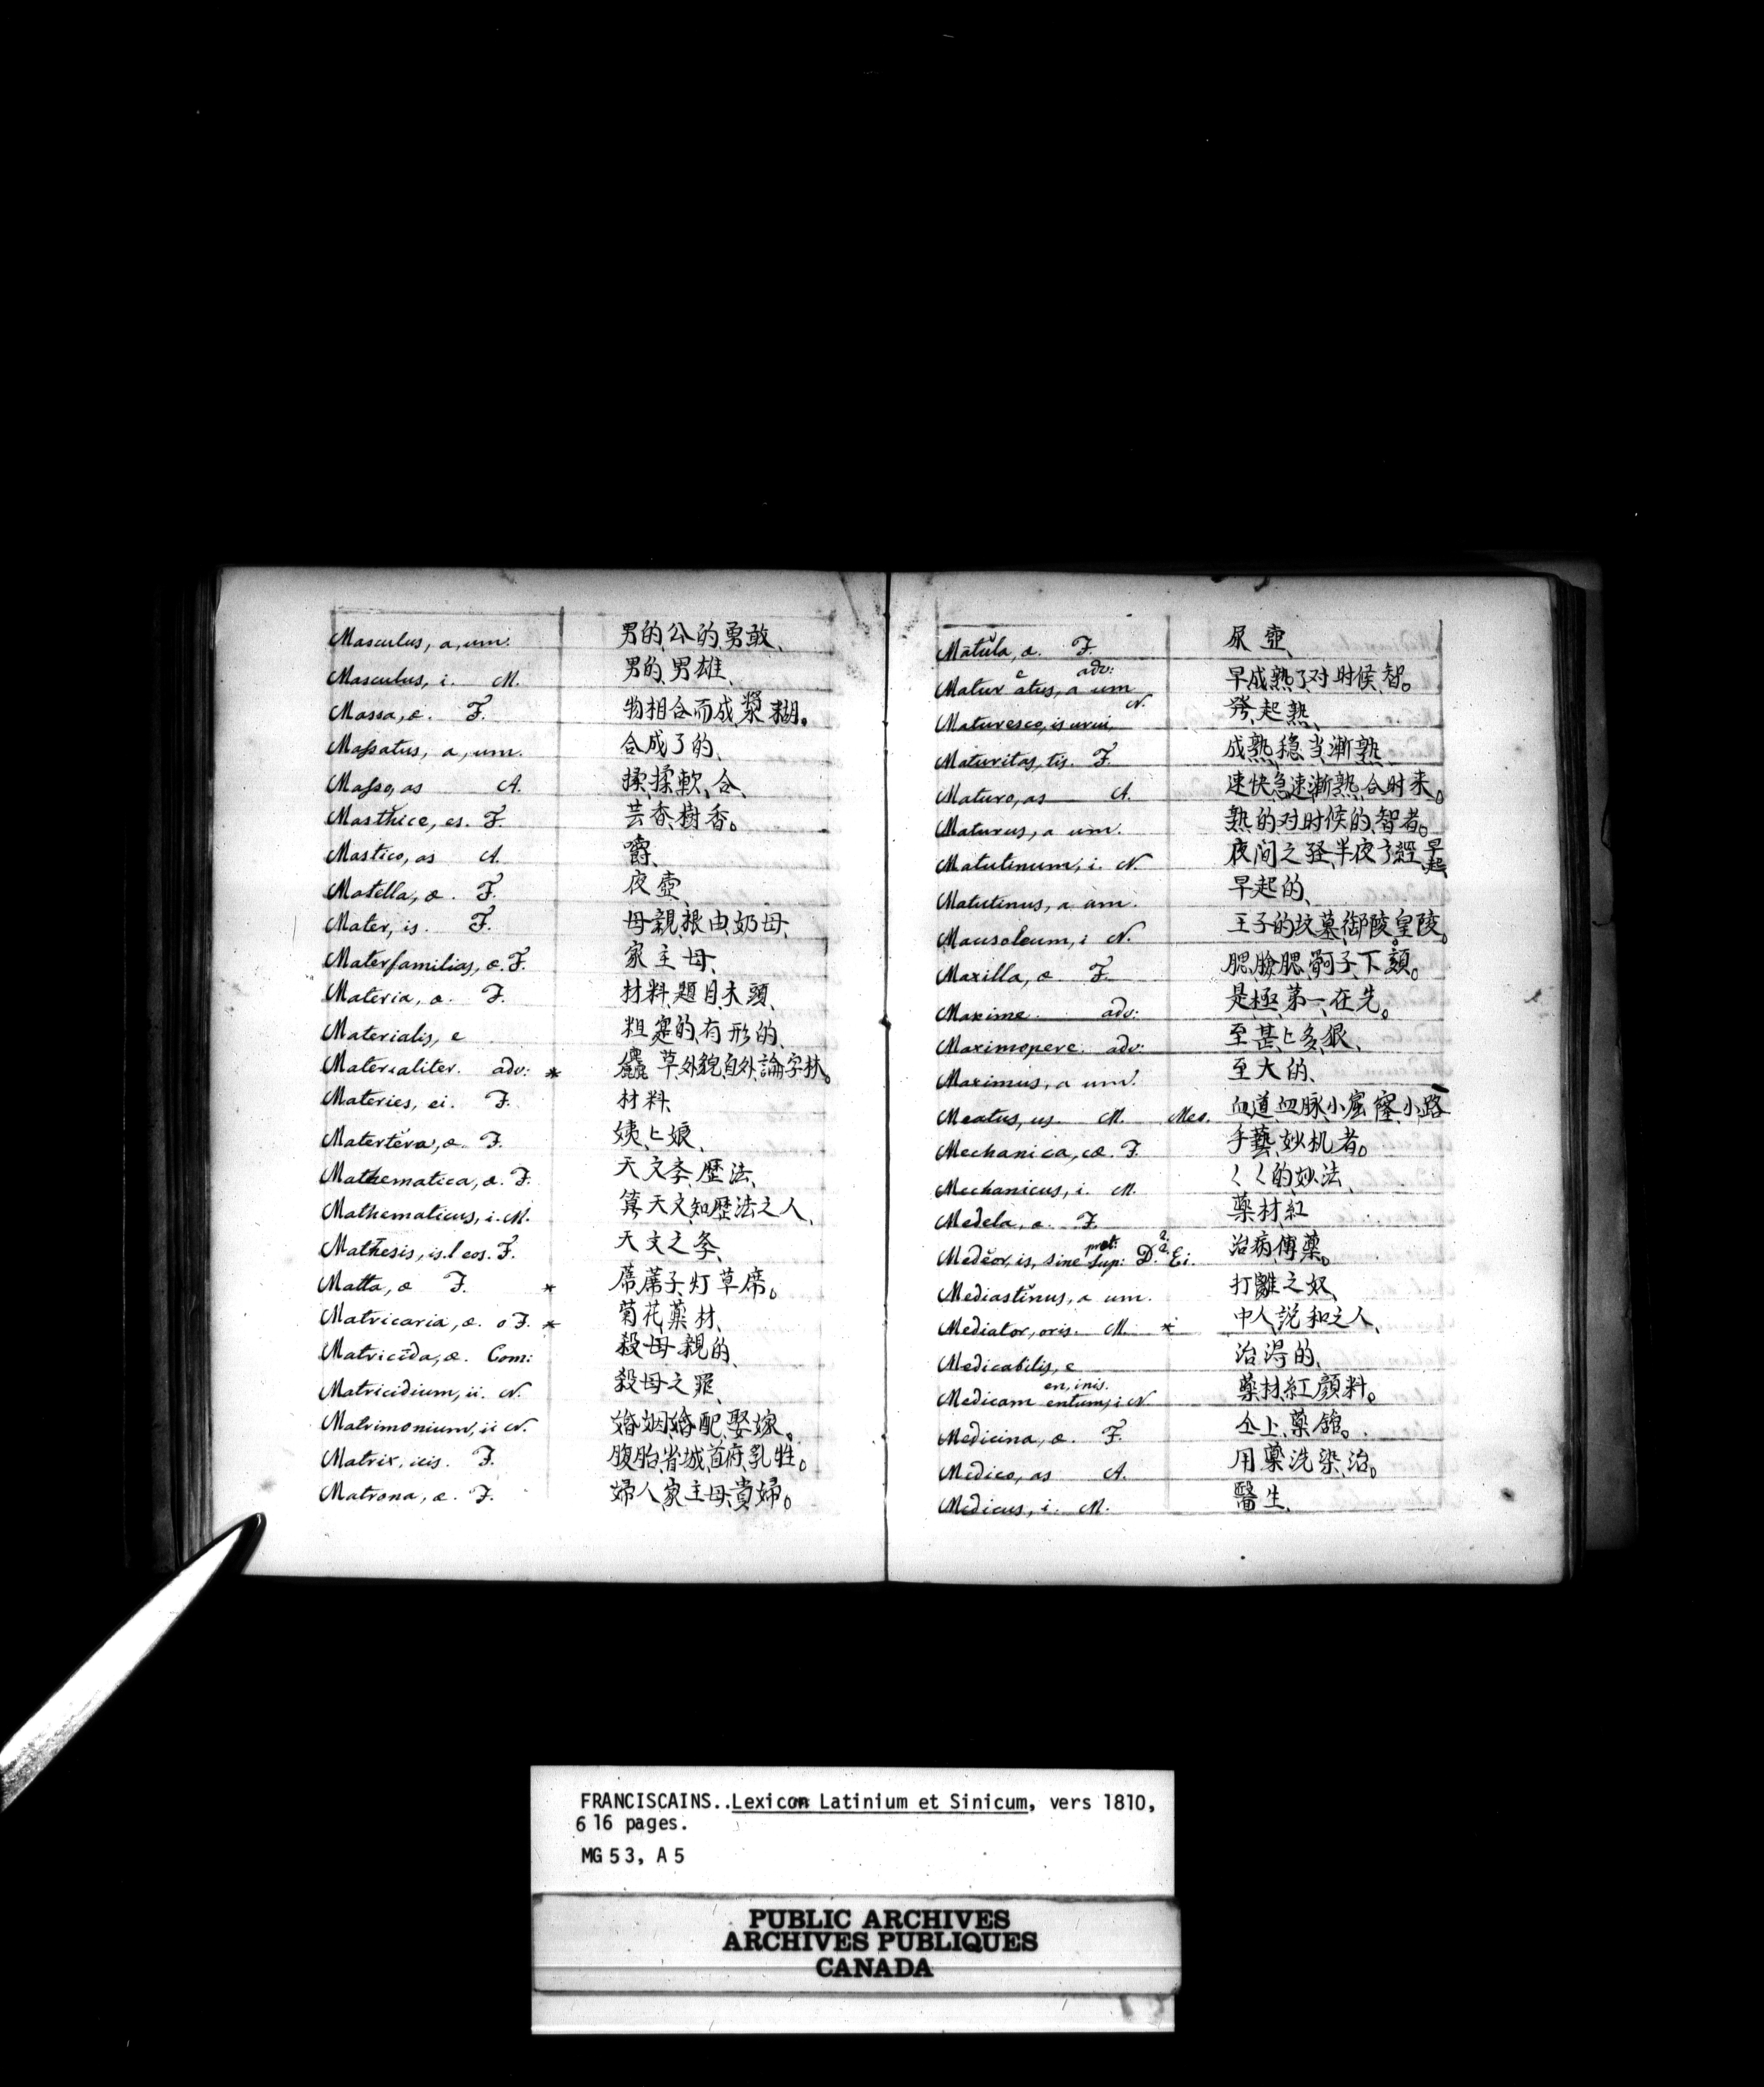 Masculus, a, um. 男的、公的、勇敢、
Masculus, i. M. 男的、男雄、
Massa, æ. F. 物相合而成、漿糊。
Maſsatus, a, um. 合成了的、
Maſso, as A. 揉、揉軟、合、
Masthice, es. F. 芸香、樹香。
Mastico, as A. 嚼、
Matella, æ. F. 夜壺、
Mater, is. F. 母親、根由、奶母、
Materfamilias, æ. F. 家主母、
Materia, æ. F. 材料、題目、木頭、
Materialis, e 粗的、有形的、
Materialiter. adv: * 草、外貌、自外、論字
Materies, ei. F. 材料、
Matertĕra, æ. F. 姨匕娘、
Mathematica, æ. F. 天文李、歷法、
Mathematicus, i. M. 算天文、知歷法之人、
Mathesis, is. l eos. F. 天文之
Matta, æ F. * 蓆、蓆子、灯草席。
Matricaria, æ. o F. * 菊花、藥材、
Matricīda, æ. Com: 殺母親的、
Matricidium, ii. N. 殺母之罪、
Matrimonium, ii N. 婚姻、婚配、娶嫁。
Matrix, icis. F. 腹胎、省城、首府、乳牲。
Matrona, æ. F. 婦人、家主母、貴婦。
Mătŭla, æ. F. 尿壺、
e adv:
Matur atus, a um 早、成熟了、对时候、智。
Maturesco, is urui, N. 發起、熟、
Maturitas, tis. F. 成熟、穏当、漸熟
Maturo, as A. 速快、急速、漸熟、合时来。
Maturus, a um. 熟的、对时候的、智者。
Matutinum, i. N. 夜间之经、半夜了經、早起、
Matutinus, a um. 早起的、
Mausoleum, i N. 王子的坟墓、御陵、皇陵。
Maxilla, æ F. 腮、臉腮、子、下頦。
Maxime. adv: 是極、第一、在先。
Maximopere. adv: 至甚、匕多、狠、
Maximus, a um. 至大的、
Meatus, us. M. Meo. 血道、血脉、小窟窿、小路
Mechanica, cæ. F. 手藝、妙机者。
Mechanicus, i. M. 〱〱的、妙法、
Medela, æ. F. 藥材、紅
pret: 2.
Medĕor, is, sine Sup: D. Ei. 治病、傅藥。
Mediastĭnus, a um. 打離之奴、
Mediator, oris. M. * 中人、說和之人、
Medicabilis, e 治淂的、
en, inis.
Medicam entum, i N. 藥材、紅、顏料。
Medicina, æ. F. 仝上、藥舘。
Medico, as A. 用藥、洗、染、治。
Medicus, i. M. 醫生、
FRANCISCAINS..Lexicon Latinium et Sinicum, vers 1810,
616 pages.
MG 53, A 5
PUBLIC ARCHIVES
ARCHIVES PUBLIQUES
CANADA